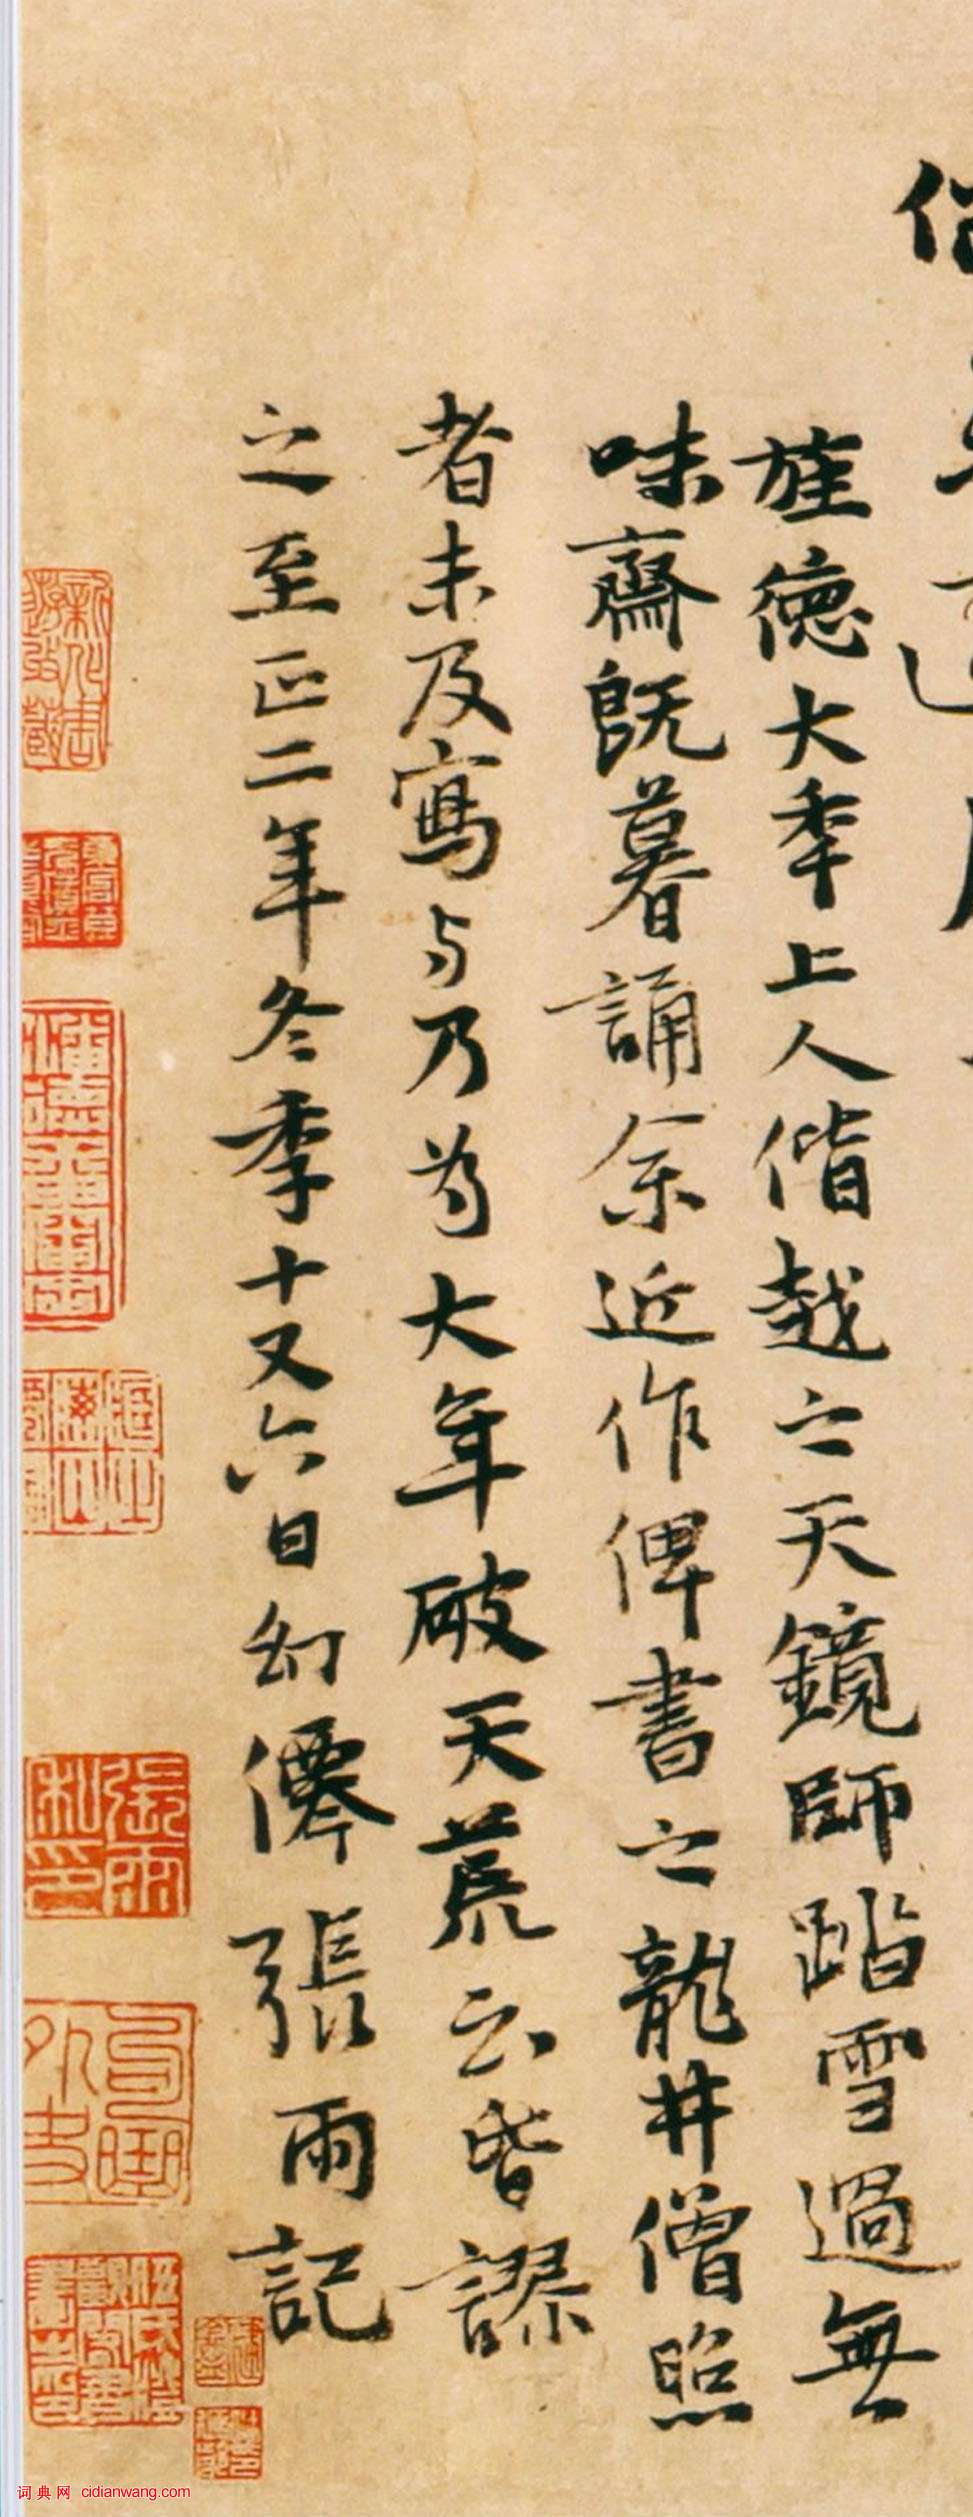 旌德大秊上人偕越之天鏡師踏雪過無
味齋既暮誦余近作俾書之龍井僧照
者未及寫与乃為大年破天荒云皆謬
之至正二年冬季十又六日幻僊張雨記
張雨私印
句曲外史
词典网 cidianwang.com